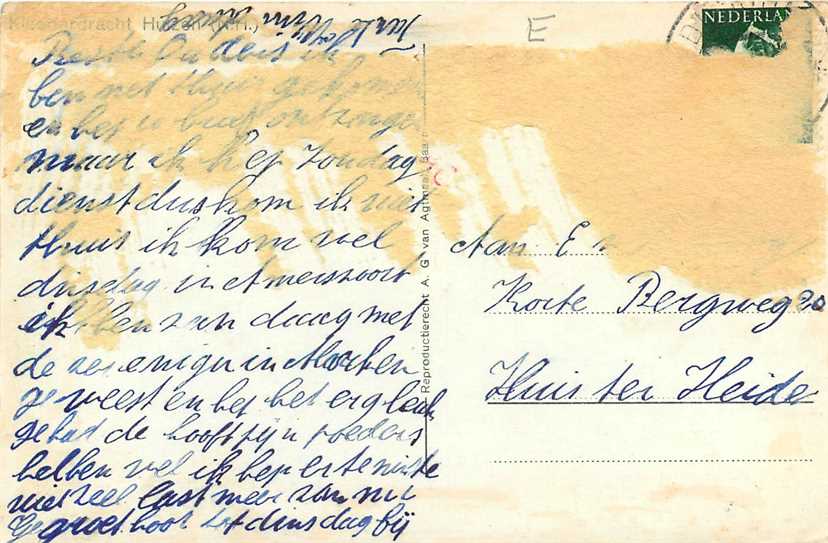 Klederdracht Huizen (N.H.)
E
NEDERLAN
Beste Ou deis ik
ben net thuis gekomen
en heb u brief ontvangen
maar ik hep Zondag
dienst dus kom ik niet
thuis ik kom wel
dinsdag in Amersvoort
ik ben van daag met
de vereniging in
geweest en hep het erg leuk
gehad de hooft pijn poeders
helben wel ik hep er ten minste
niet veel last meer van nu
gegroet hoor tot dinsdag bij
Reproductierecht A. G. van Agtmaal,
Aan E
Korte Bergweg 20
Huis ter Heide